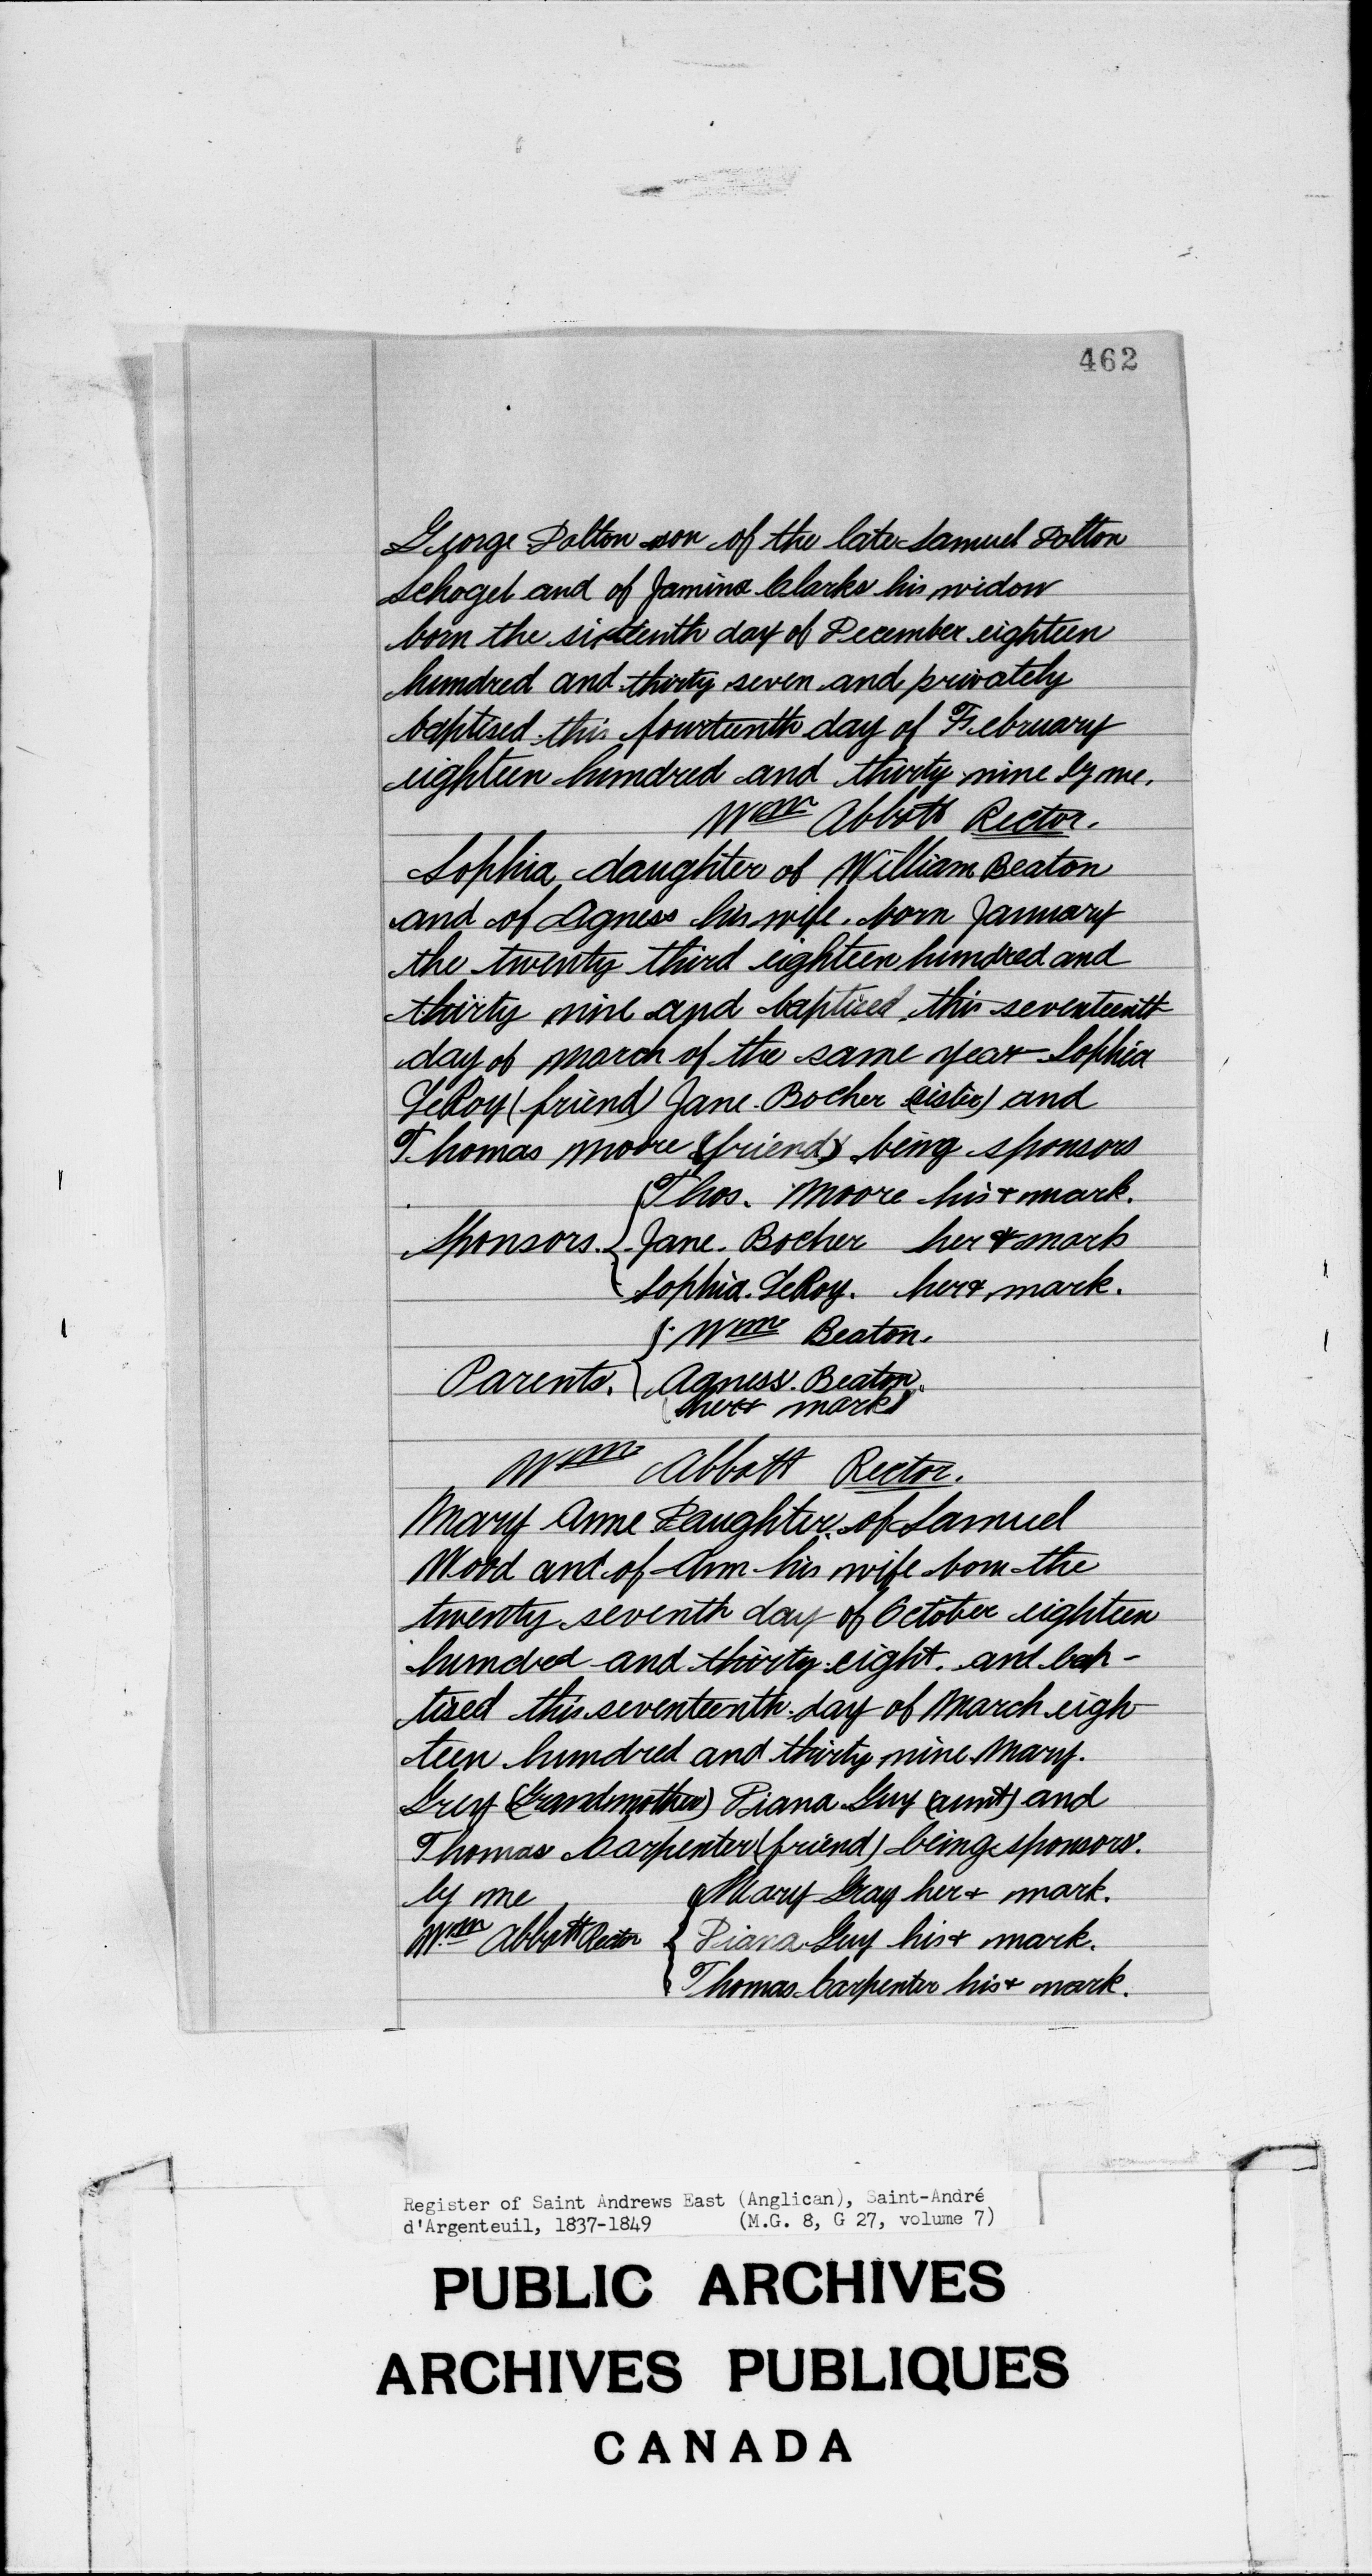 462
George Dalton son of the late Samuel Dalton
Schogel and of Jamina Clarke his widow
born the sixteenth day of December eighteen
hundred and thirty seven and privately
baptised this fourteenth day of February
eighteen hundred and thirty nine by me.
Wm Abbott Rector.
Sophia daughter of William Beaton
and of Agness his wife. born January
the twenty third eighteen hundred and
thirty nine and baptised this seventeenth
day of March of the same year Sophia
LeRoy (friend) Jane Bocher (sister) and
Thomas Moore (friend) being sponsors
Thos. Moore his + mark.
Sponsors. Jane. Bocher her + mark
Sophia. LeRoy. her + mark.
Wm Beaton.
Parents. Agness. Beaton.
her + mark
Wm Abbott Rector.
Mary Anne Daughter of Samuel
Wood and of Ann his wife born the
twenty seventh day of October eighteen
hundred and thirty eight. and bap-
tised this seventeenth day of March eigh-
teen hundred and thirty nine Mary.
Grey (Grandmother) Diana Guy (aunt) and
Thomas Carpenter (friend) being sponsors.
by me Mary Gray her + mark.
Wm Abbott Rector Diana Guy his + mark.
Thomas Carpenter his + mark.
Register of Saint Andrews East (Anglican), Saint-André
d'Argenteuil, 1837-1849 (M.G. 8, G 27, volume 7)
PUBLIC ARCHIVES
ARCHIVES PUBLIQUES
CANADA